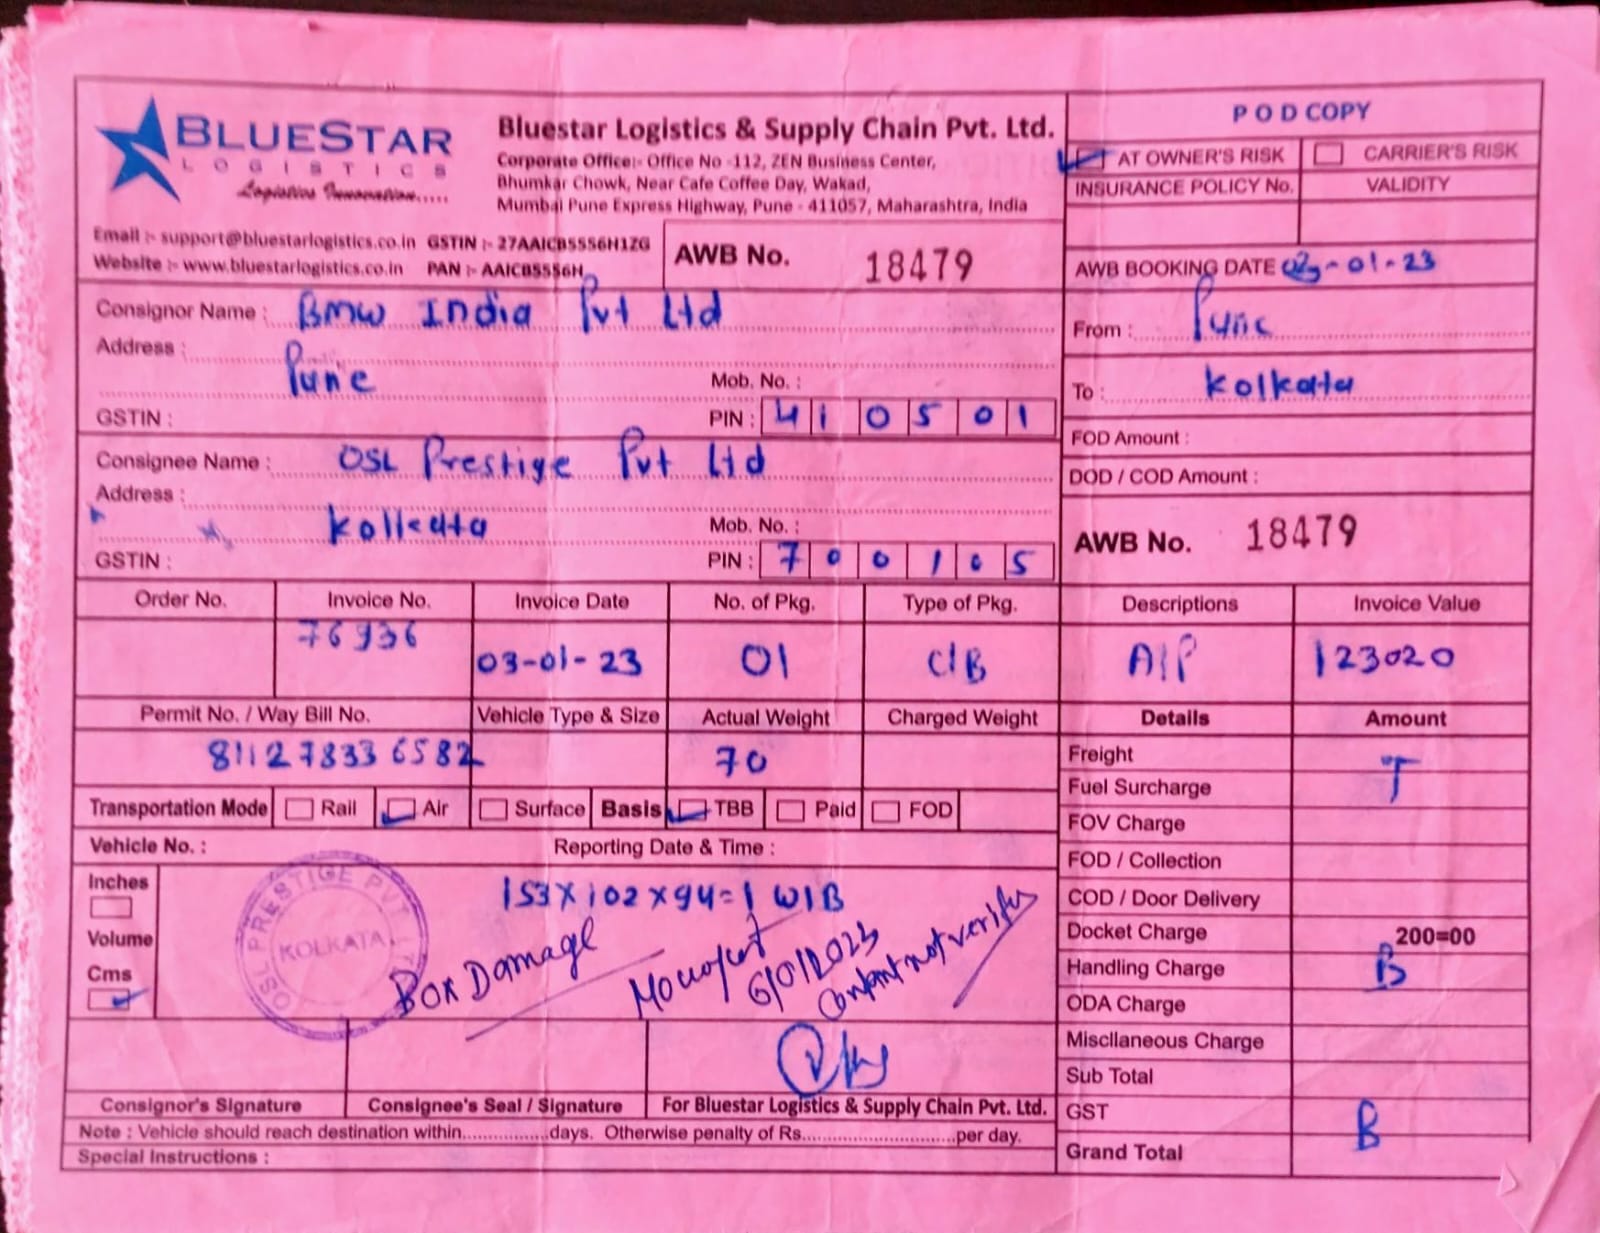 BLUESTAR
LOGISTICS
Logistics Innovation.....
Bluestar Logistics & Supply Chain Pvt. Ltd.
Corporate Office:- Office No -112, ZEN Business Center,
Bhumkar Chowk, Near Cafe Coffee Day, Wakad,
Mumbai Pune Express Highway, Pune - 411057, Maharashtra, India
Email :- support@bluestarlogistics.co.in GSTIN :- 27AAICB5556H1ZG
Website :- www.bluestarlogistics.co.in PAN :- AAICB5556H
AWB No. 18479
POD COPY
AT OWNER'S RISK CARRIER'S RISK
INSURANCE POLICY No. VALIDITY
AWB BOOKING DATE 03-01-23
From : Pune
To : Kolkata
FOD Amount :
DOD / COD Amount :
AWB No. 18479
Consignor Name : BMW India Pvt Ltd
Address :
Pune Mob. No. :
GSTIN : PIN : 410501
Consignee Name : OSL Prestige Pvt Ltd
Address :
Kolkata Mob. No. :
GSTIN : PIN : 700105
Order No. Invoice No. Invoice Date No. of Pkg. Type of Pkg. Descriptions Invoice Value
76936 03-01-23 01 C/B A/P 123020
Permit No. / Way Bill No. Vehicle Type & Size Actual Weight Charged Weight Details Amount
811278336582 70
Transportation Mode Rail Air Surface Basis TBB Paid FOD
Vehicle No. : Reporting Date & Time :
Inches
Volume
Cms
153 x 102 x 94 = 1 W/B
OSL PRESTIGE PVT LTD
KOLKATA
Box Damage
6/01/2023
not verify
Freight T
Fuel Surcharge
FOV Charge
FOD / Collection
COD / Door Delivery
Docket Charge 200=00
Handling Charge B
ODA Charge
Miscllaneous Charge
Sub Total
GST B
Grand Total
Consignor's Signature Consignee's Seal / Signature For Bluestar Logistics & Supply Chain Pvt. Ltd.
Note : Vehicle should reach destination within................days. Otherwise penalty of Rs............................per day.
Special Instructions :